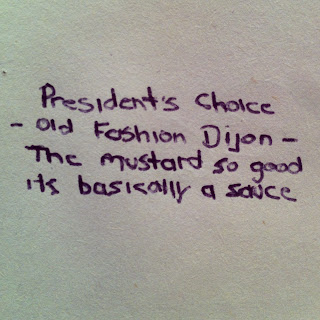 President's Choice
- Old Fashion Dijon -
The mustard so good
its basically a sauce